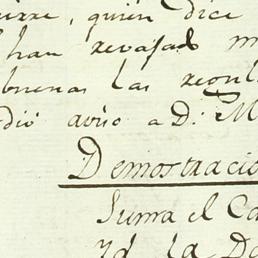 quien dice
han revajad m
buenas las regul
dió aviso a D. M
Demostracio
Suma el Ca
Yd la De